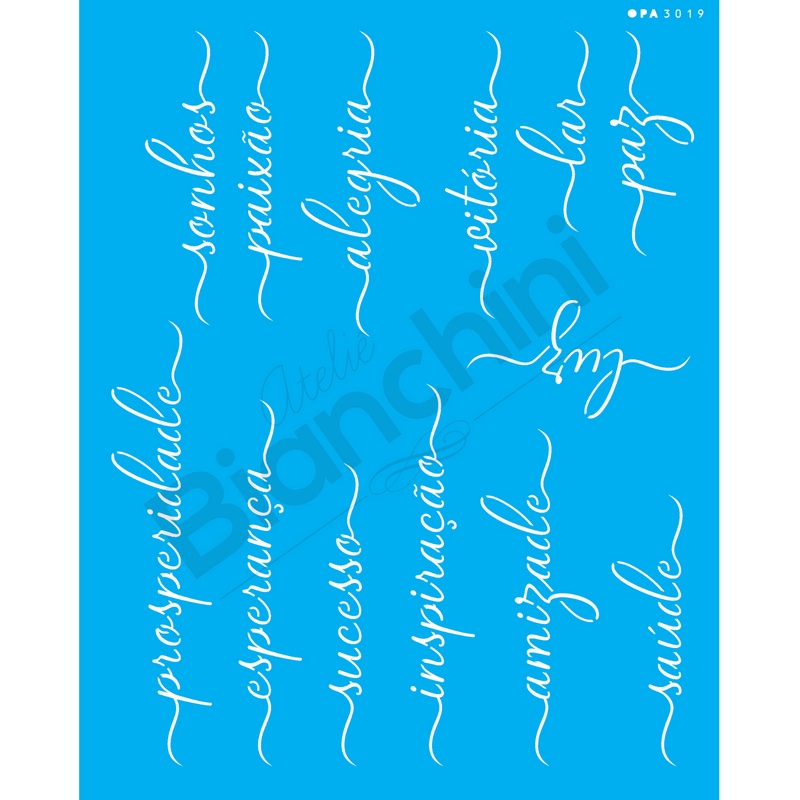 OPA 3019
sonhos
paixão
alegria
vitória
lar
paz
luz
prosperidade
esperança
sucesso
inspiração
amizade
saúde
Ateliê
Bianchini